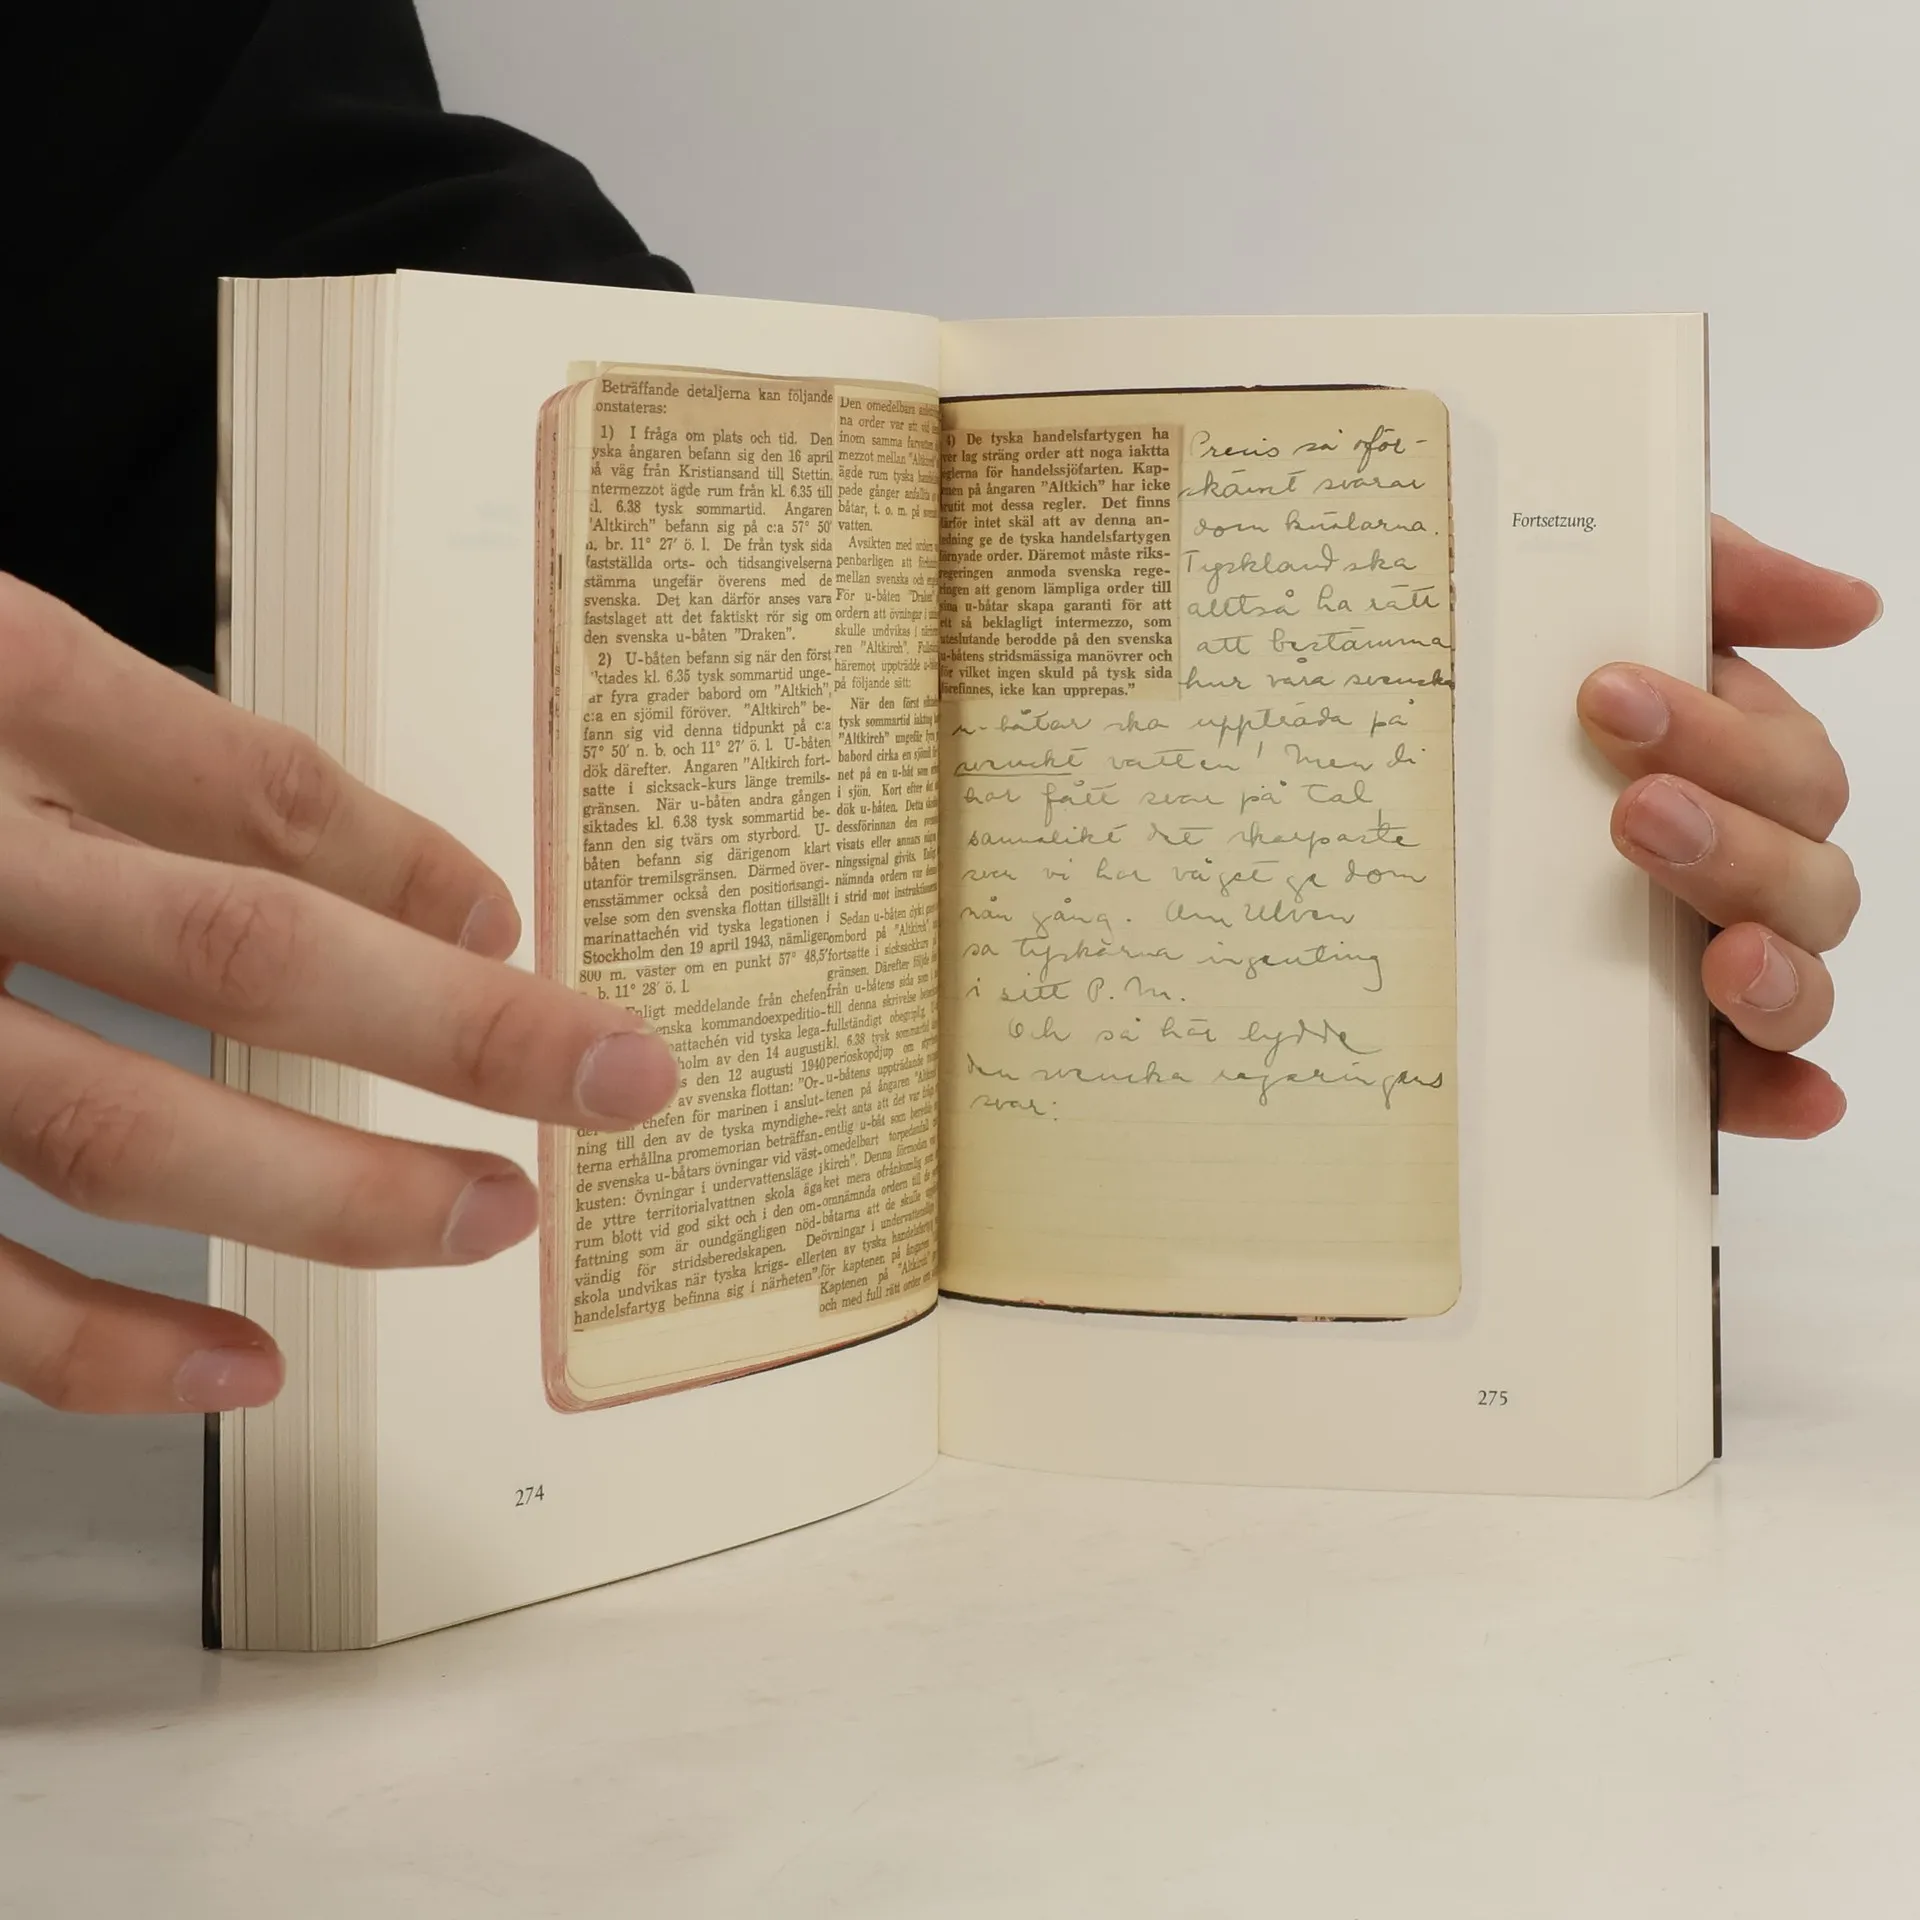 Beträffande detaljerna kan följande
onstateras:
1) I fråga om plats och tid. Den
yska ångaren befann sig den 16 april
å väg från Kristiansand till Stettin.
ntermezzot ägde rum från kl. 6.35 till
kl. 6.38 tysk sommartid. Ångaren
"Altkirch" befann sig på c:a 57° 50′
n. br. 11° 27′ ö. l. De från tysk sida
fastställda orts- och tidsangivelserna
stämma ungefär överens med de
svenska. Det kan därför anses vara
fastslaget att det faktiskt rör sig om
den svenska u-båten "Draken".
2) U-båten befann sig när den först
ktades kl. 6.35 tysk sommartid unge-
är fyra grader babord om "Altkich",
c:a en sjömil föröver. "Altkirch" be-
fann sig vid denna tidpunkt på c:a
57° 50′ n. b. och 11° 27′ ö. l. U-båten
dök därefter. Ångaren "Altkirch fort-
satte i sicksack-kurs länge tremils-
gränsen. När u-båten andra gången
siktades kl. 6.38 tysk sommartid be-
fann den sig tvärs om styrbord. U-
båten befann sig därigenom klart
utanför tremilsgränsen. Därmed över-
ensstämmer också den positionsangi-
velse som den svenska flottan tillställt
marinattachén vid tyska legationen i
Stockholm den 19 april 1943, nämligen
800 m. väster om en punkt 57° 48,5′
b. 11° 28′ ö. l.
Enligt meddelande från chefen
enska kommandoexpeditio-
nattachén vid tyska lega-
holm av den 14 augusti
s den 12 augusti 1940
av svenska flottan: "Or-
chefen för marinen i anslut-
ning till den av de tyska myndighe-
terna erhållna promemorian beträffan-
de svenska u-båtars övningar vid väst-
kusten: Övningar i undervattensläge i
de yttre territorialvattnen skola äga
rum blott vid god sikt och i den om-
fattning som är oundgängligen nöd-
vändig för stridsberedskapen. De
skola undvikas när tyska krigs- eller
handelsfartyg befinna sig i närheten".
Den omedelbara
na order var att vid
inom samma farvatten
mezzot mellan "Altkirch"
ägde rum tyska
pade gånger anfallits
båtar, t. o. m. på
vatten.
Avsikten med ordern
penbarligen att
mellan svenska och
För u-båten "Draken"
ordern att övningar i
skulle undvikas i
ren "Altkirch".
häremot uppträdde u-båten
på följande sätt:
När den först
tysk sommartid
"Altkirch" ungefär fyra
babord cirka en sjömil
net på en u-båt som
i sjön. Kort efter
dök u-båten. Detta
dessförinnan den
visats eller annars
ningssignal givits. Enligt
nämnda ordern var
i strid mot
Sedan u-båten dykt
ombord på "Altkirch"
fortsatte i sicksackkurs
gränsen. Därefter följde
från u-båtens sida som
till denna skrivelse
fullständigt obegriplig.
kl. 6.38 tysk sommartid
perioskopdjup om
u-båtens uppträdande
tenen på ångaren
rekt anta att det var
entlig u-båt som
omedelbart torpedanfall
kirch". Denna förmodan
ket mera ofrånkomlig som
omnämnda ordern till de
båtarna att de skulle
övningar i undervattensläge
ten av tyska handelsfartyg
för kaptenen på ångaren
Kaptenen på "Altkirch"
och med full rätt order om
4) De tyska handelsfartygen ha
ver lag sträng order att noga iaktta
eglerna för handelssjöfarten. Kap-
enen på ångaren "Altkich" har icke
brutit mot dessa regler. Det finns
därför intet skäl att av denna an-
edning ge de tyska handelsfartygen
förnyade order. Däremot måste riks-
regeringen anmoda svenska rege-
ringen att genom lämpliga order till
sina u-båtar skapa garanti för att
ett så beklagligt intermezzo, som
uteslutande berodde på den svenska
u-båtens stridsmässiga manövrer och
för vilket ingen skuld på tysk sida
förefinnes, icke kan upprepas."
Precis så oför-
skämt svarar
dom knölarna.
Tyskland ska
alltså ha rätt
att bestämma
hur våra svenska
u-båtar ska uppträda på
svenskt vatten! Men di
har fått svar på tal,
sannolikt det skarpaste
svar vi har vågat ge dom
nån gång. Om Ulven
sa tyskarna ingenting
i sitt P. M.
Och så här lydde
den svenska regeringens
svar:
Fortsetzung.
274
275